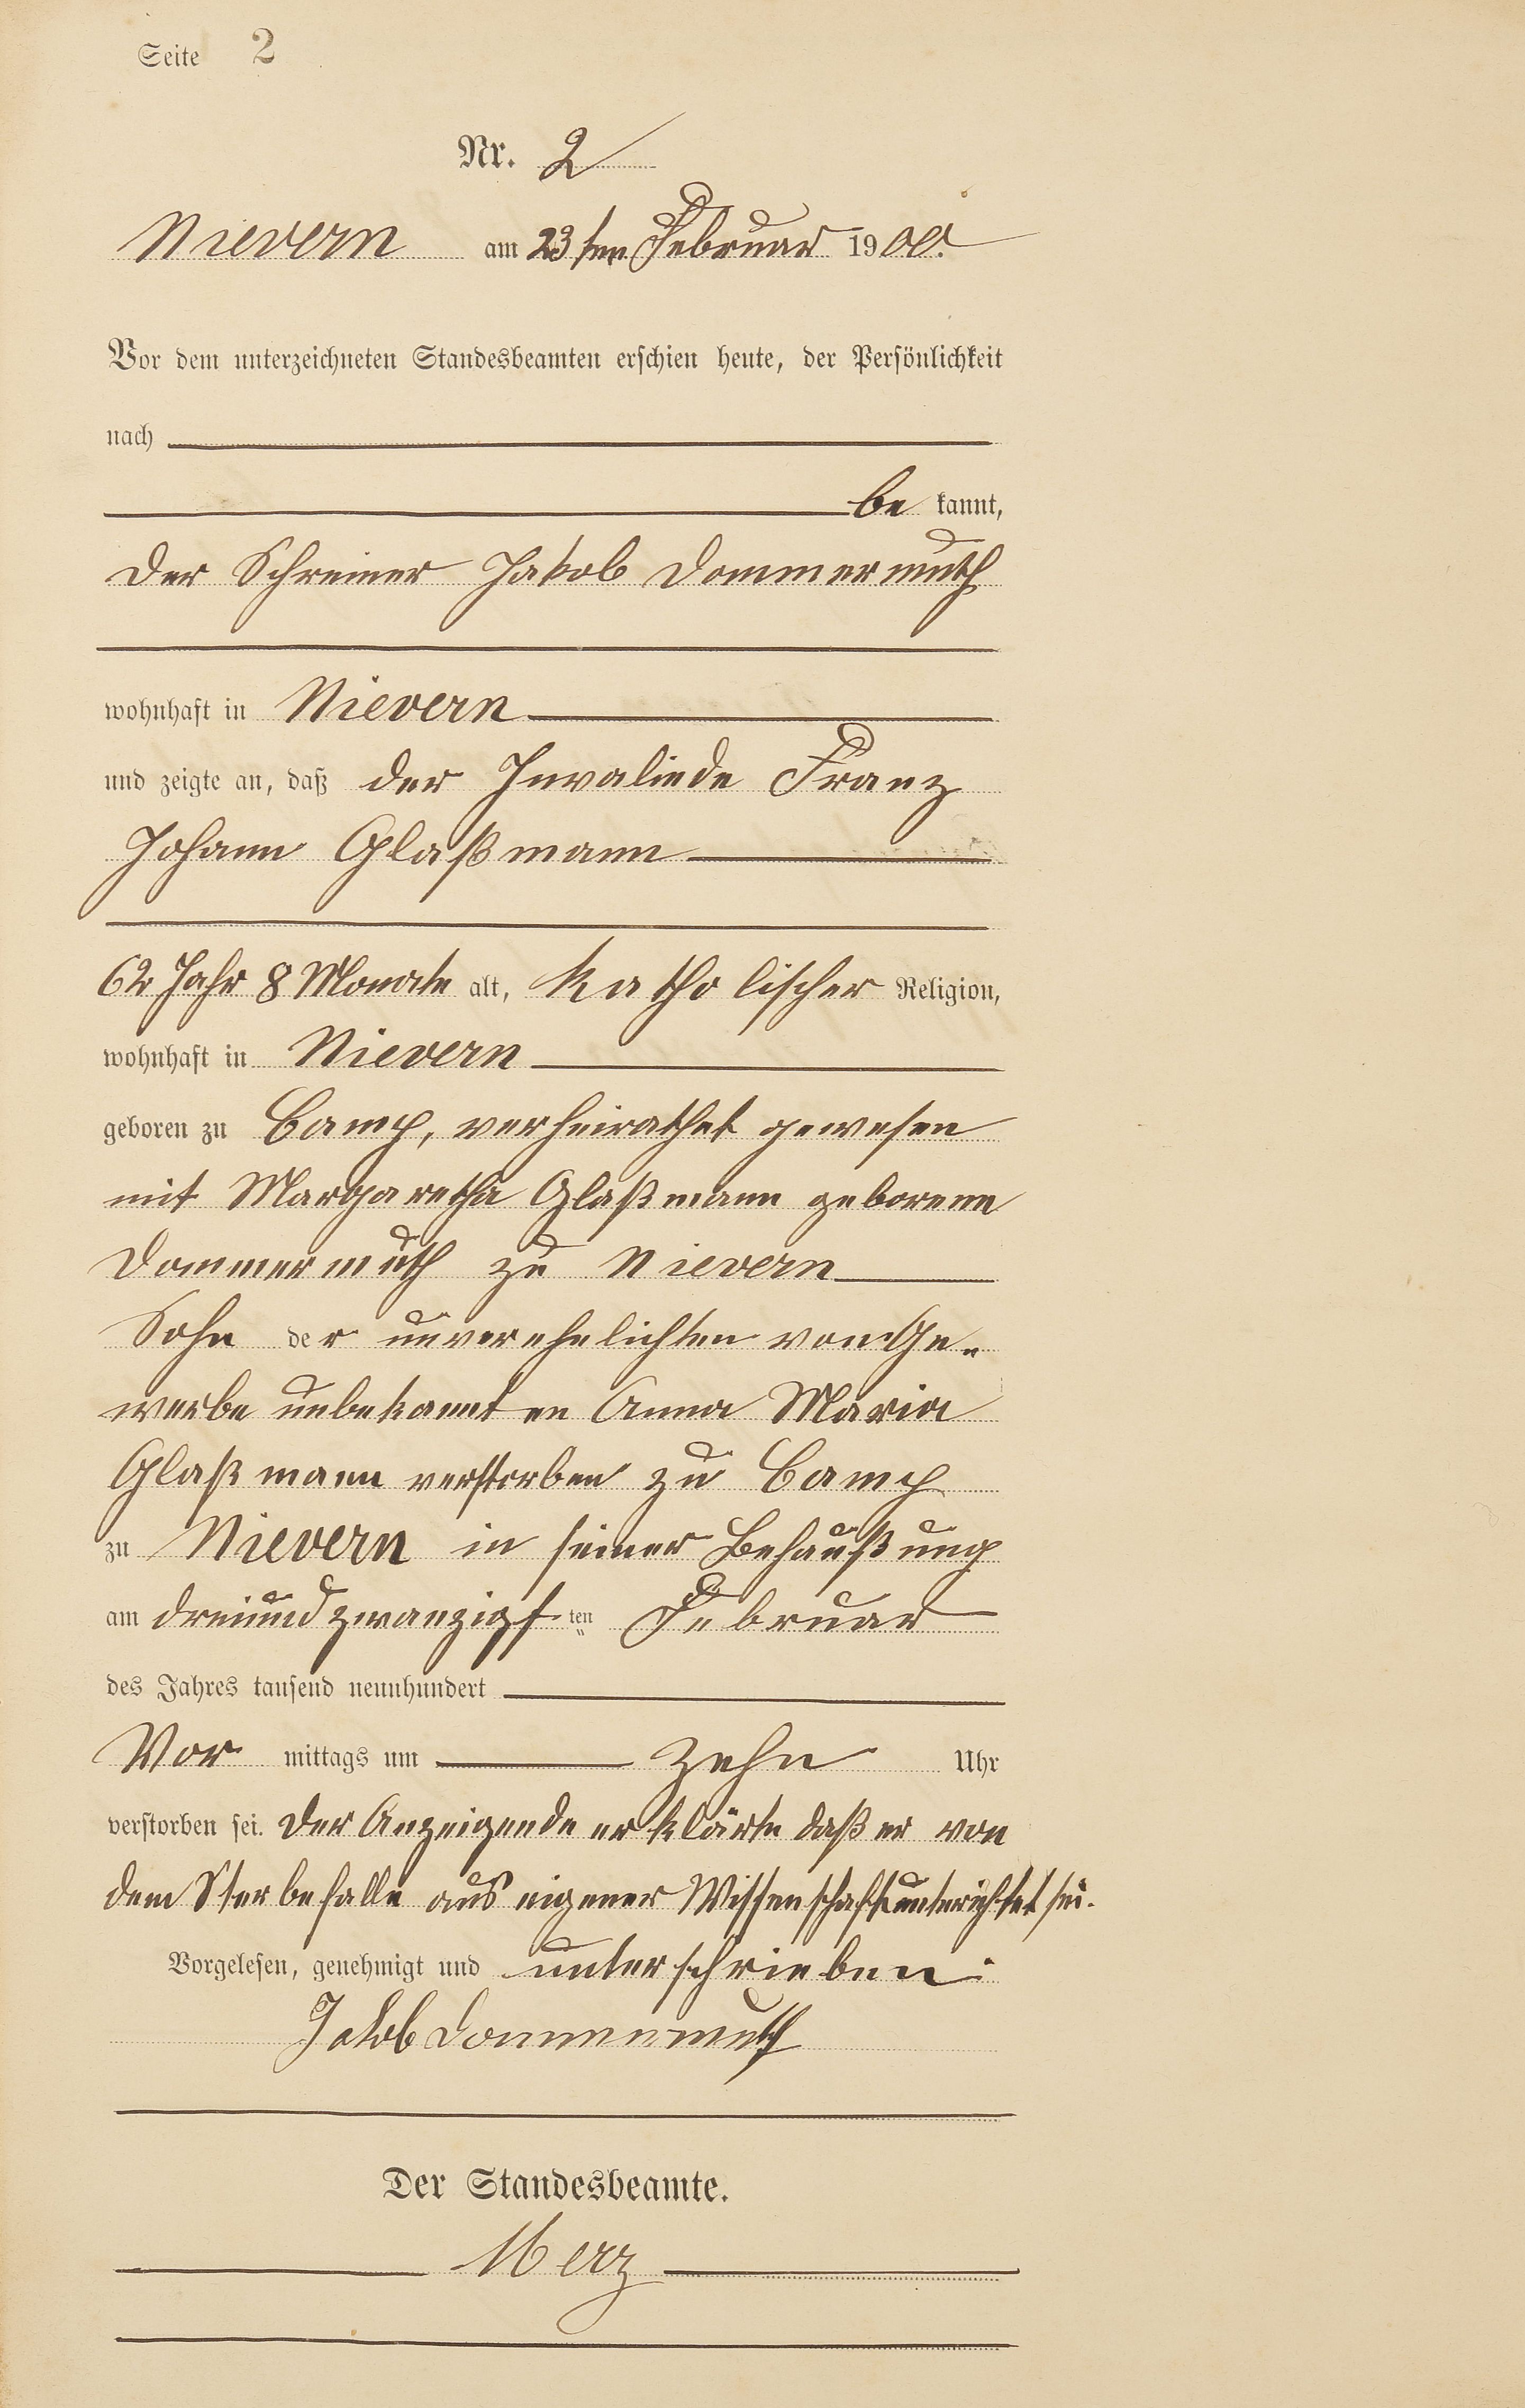 Seite 2
Nr. 2
Nievern am 23ten Februar 1900.
Vor dem unterzeichneten Standesbeamten erschien heute, der Persönlichkeit
nach
be kannt,
der Schreiner Jakob Dommermuth
wohnhaft in Nievern
und zeigte an, daß der Invaliede Franz
Johann Glaßmann
62 Jahr 8 Monate alt, katholischer Religion,
wohnhaft in Nievern
geboren zu Camp, verheirathet gewesen
mit Margaretha Glaßmann geborene
Dommermuth zu Nievern
Sohn der unverehelichten von Ge-
werbe unbekannten Anna Maria
Glaßmann verstorben zu Camp
zu Nievern in seiner Behaußung
am dreiundzwanzigsten Februar
des Jahres tausend neunhundert
Vor mittags um zehn Uhr
verstorben sei. Der Anzeigende erklärte daß er von
dem Sterbefalle aus eigener Wissenschaft unterichtet sei.
Vorgelesen, genehmigt und unterschrieben
Jakob Dommermuth
Der Standesbeamte.
Merz